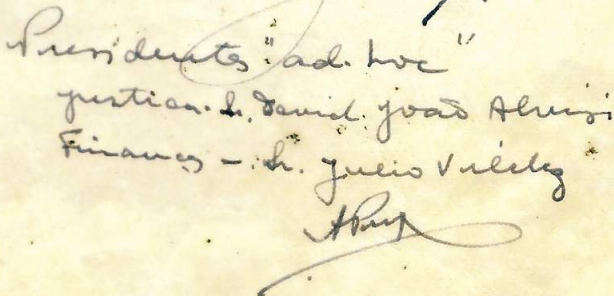 Presidentes "ad-hoc"
Justica - Sr. David João Aluisi
Financas - Sr. Julio